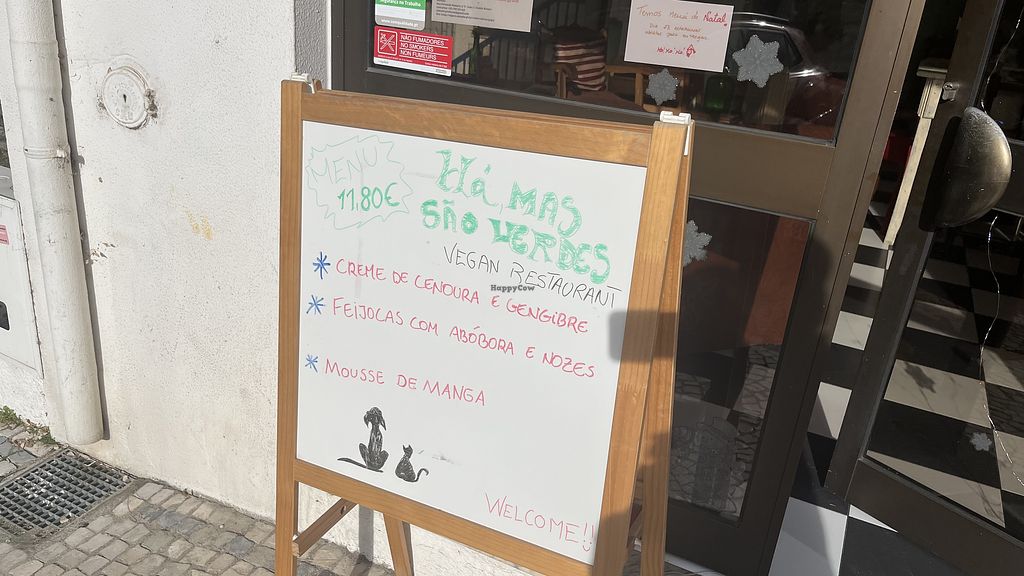 Segurança no Trabalho
NÃO FUMADORES
NO SMOKERS
NON FUMEURS
Temos Menu de Natal!
Ho! Ho! Ho!
MENU
11,80€
Há, MAS
SÃO VERDES
VEGAN RESTAURANT
HappyCow
* CREME DE CENOURA E GENGIBRE
* FEIJOCAS COM ABÓBORA E NOZES
* MOUSSE DE MANGA
WELCOME!!